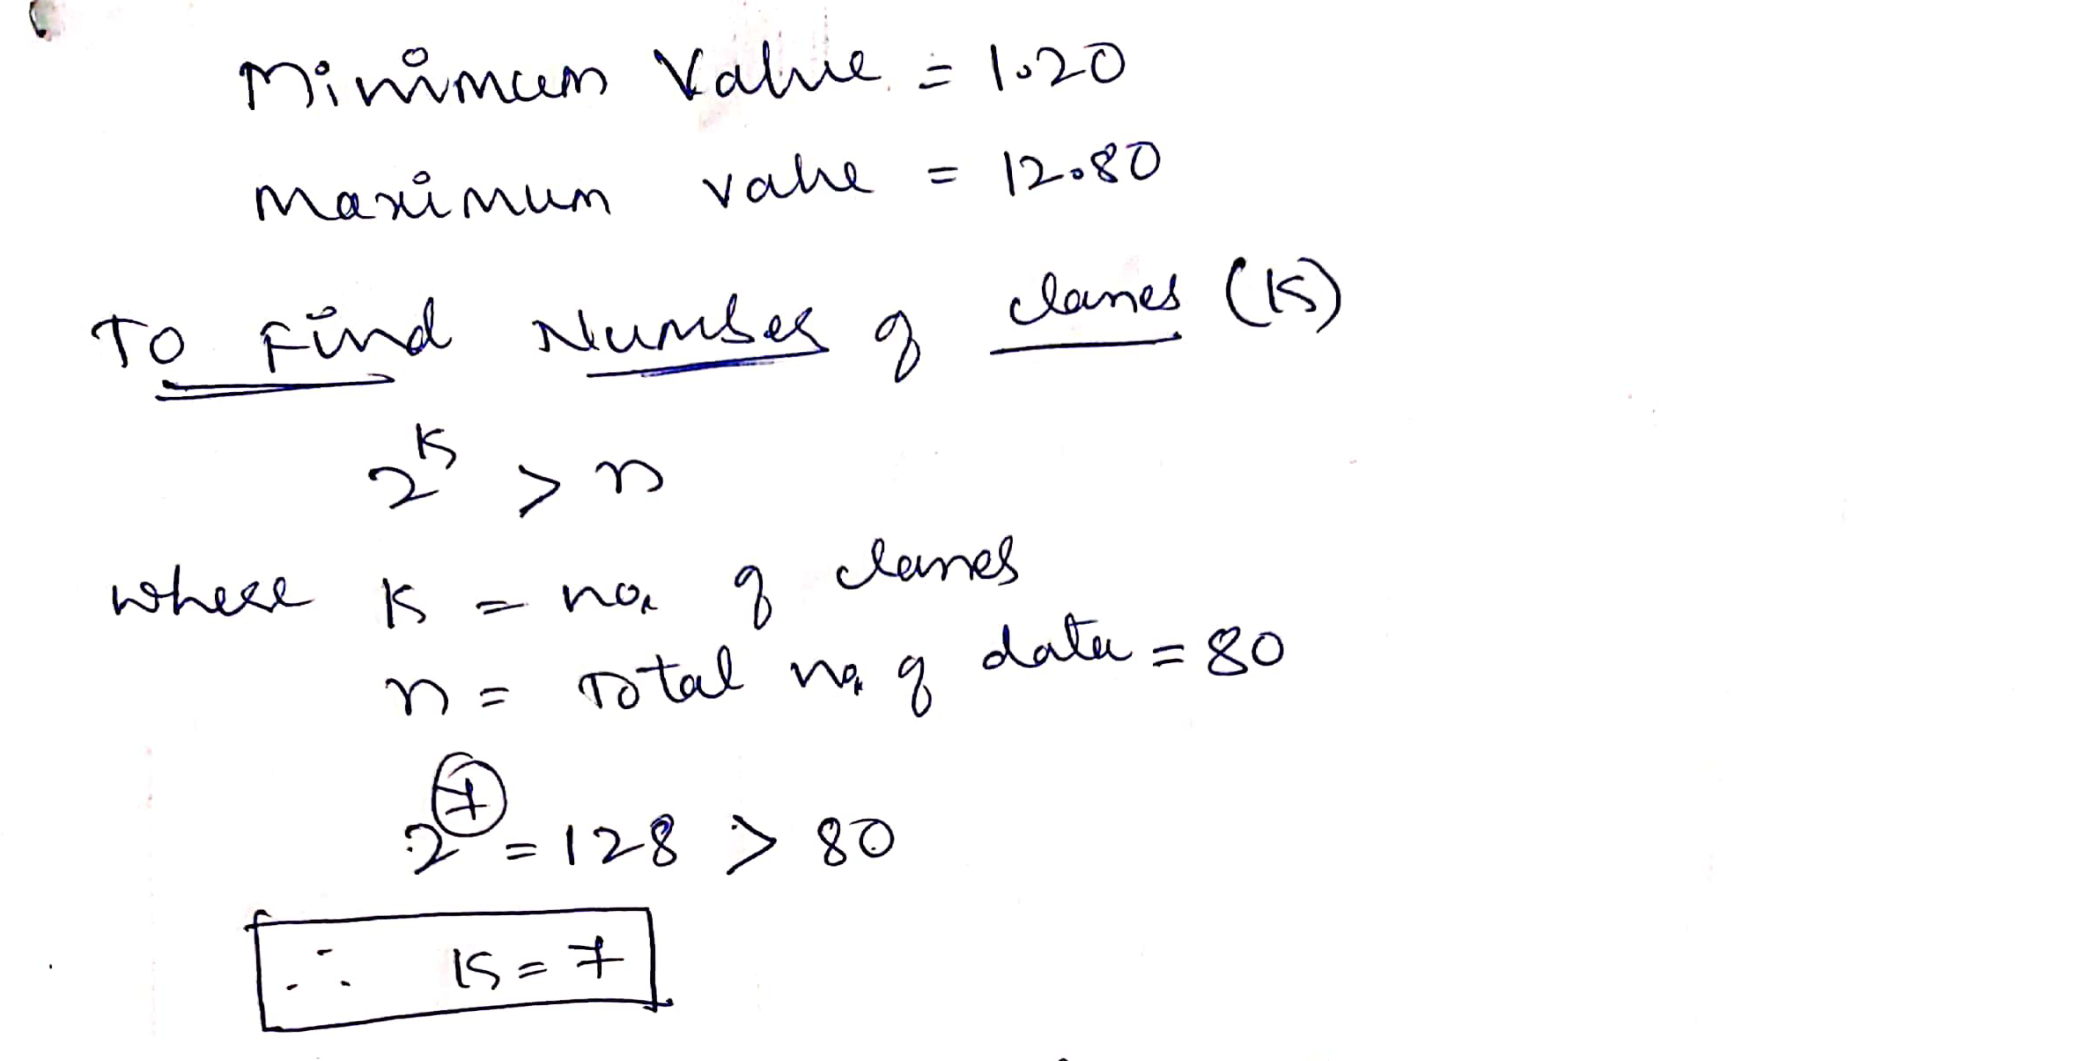 Minimum Value = 1.20
Maximum value = 12.80
To Find Number of classes (K)
2^K > n
where K = no. of classes
n = Total no. of data = 80
2^7 = 128 > 80
∴ K = 7